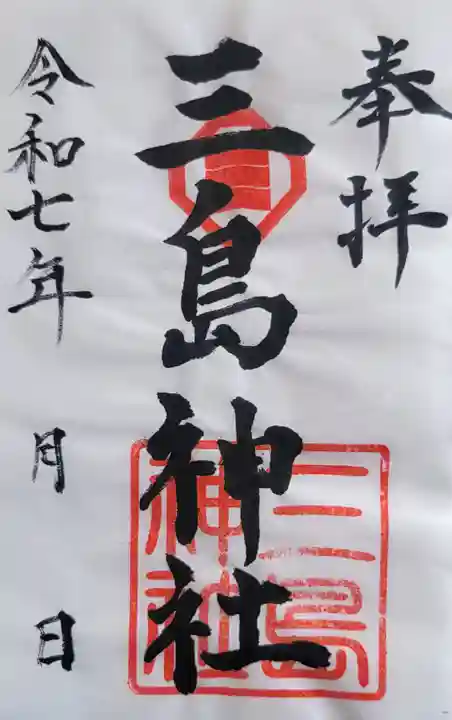 奉拝
三島神社
三島
神社
令和七年 月 日